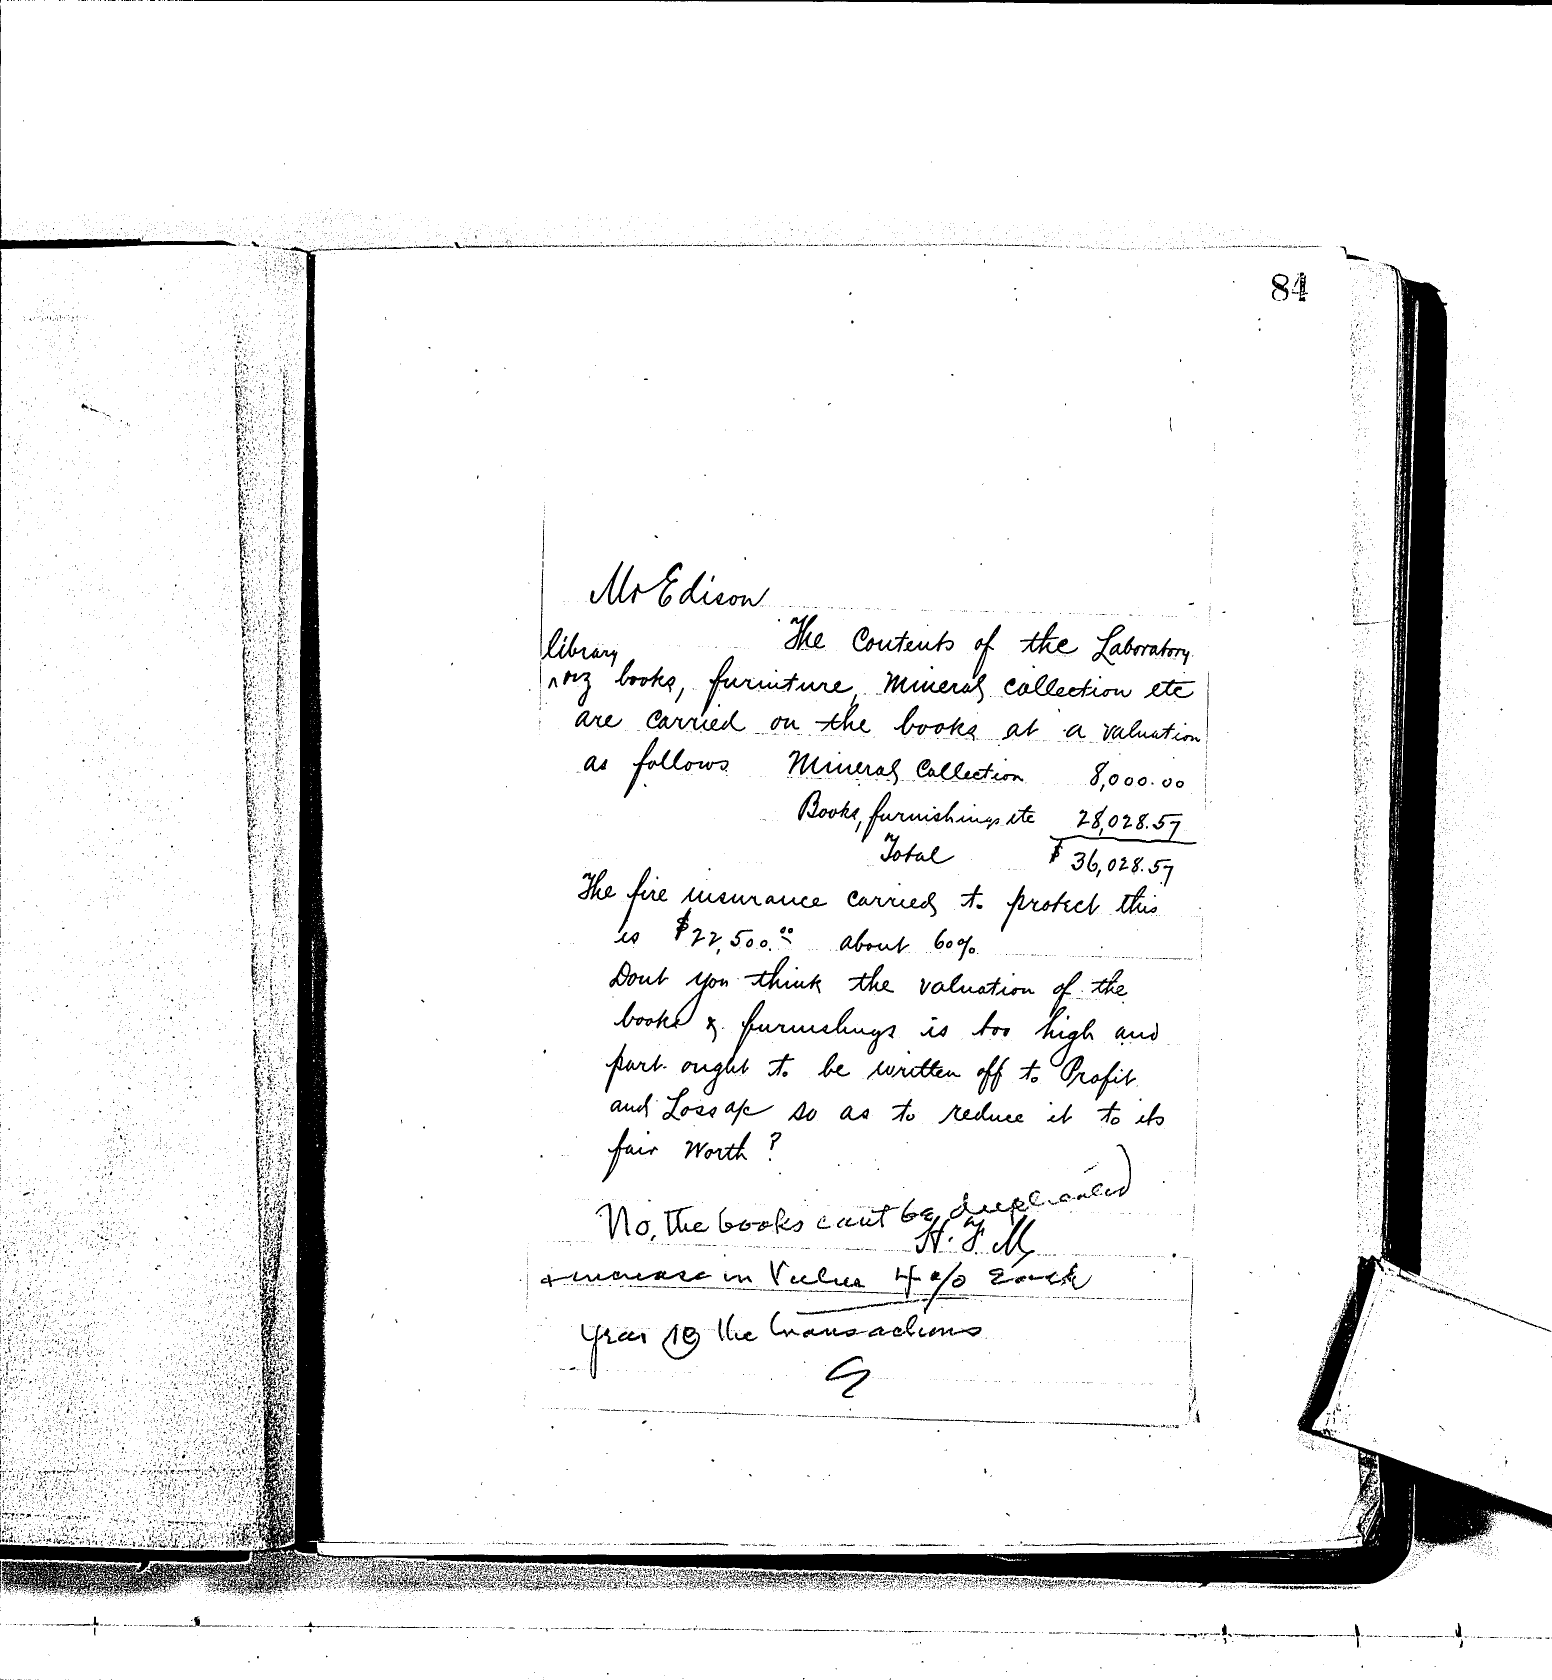 84
Mr Edison
The Contents of the Laboratory
library
^ viz books, furniture, Mineral collection etc
are carried on the books at a valuation
as follows Mineral Collection 8,000.00
Books, furnishings etc 28,028.57
Total $ 36,028.57
The fire insurance carried to protect this
is $22,500.00 about 60%
Dont you think the valuation of the
books & furnishings is too high and
part ought to be written off to Profit
and Loss a/c so as to reduce it to its
fair Worth?
No, the books cant be duplicated
H. F. M
+ increase in Value 4 % Each
year the transactions